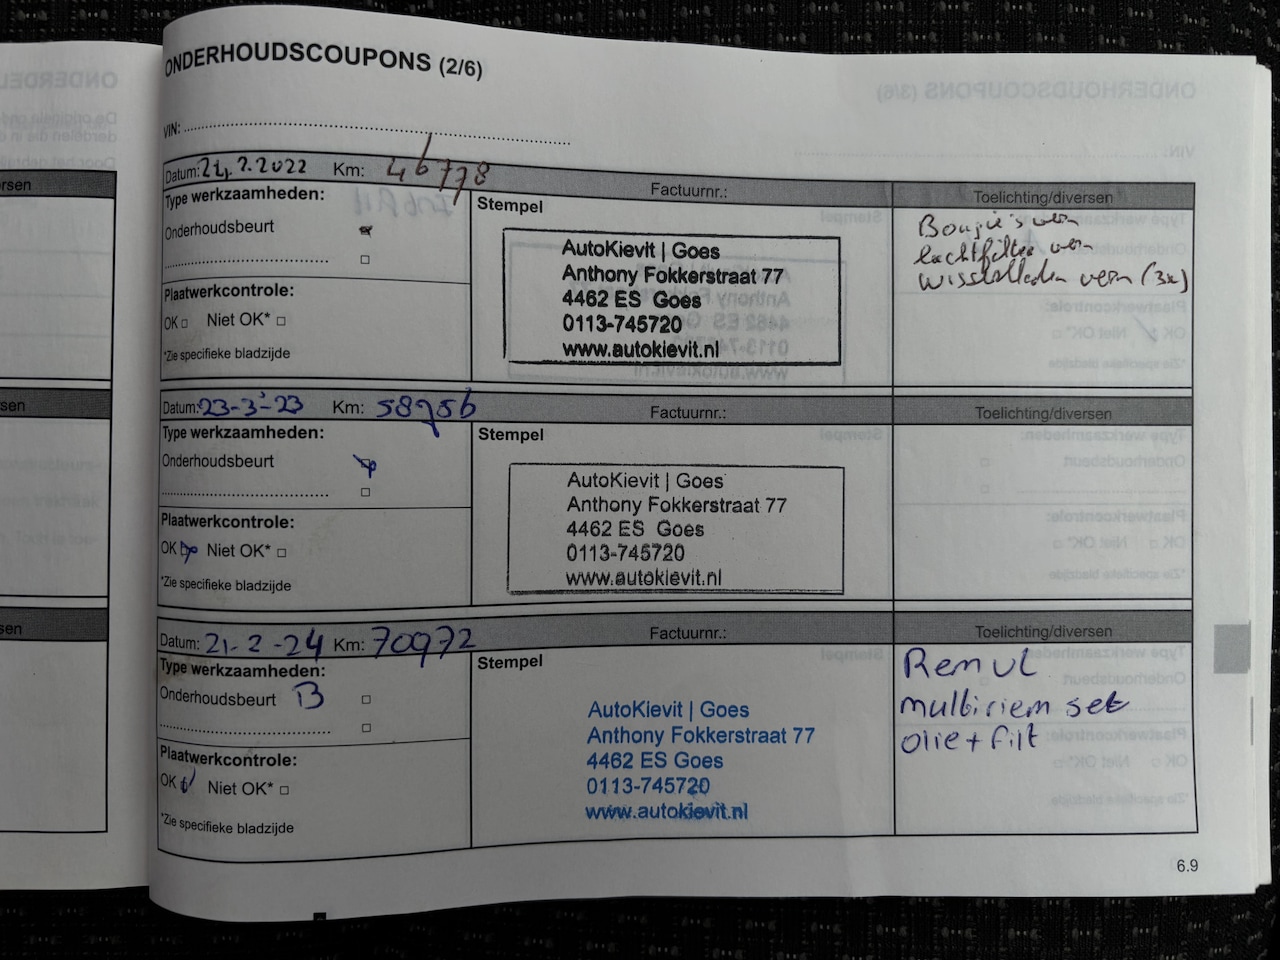 ONDERHOUDSCOUPONS (2/6)
VIN:
Datum: 21.2.2022 Km: 46778 Factuurnr.: Toelichting/diversen
Type werkzaamheden:
Onderhoudsbeurt
Plaatwerkcontrole:
OK Niet OK*
*Zie specifieke bladzijde
Stempel
AutoKievit | Goes
Anthony Fokkerstraat 77
4462 ES Goes
0113-745720
www.autokievit.nl
Bougie's vern
luchtfilter vern
wisserbladen vern (3x)
Datum: 23-3-23 Km: 58956 Factuurnr.: Toelichting/diversen
Type werkzaamheden:
Onderhoudsbeurt
Plaatwerkcontrole:
OK Niet OK*
*Zie specifieke bladzijde
Stempel
AutoKievit | Goes
Anthony Fokkerstraat 77
4462 ES Goes
0113-745720
www.autokievit.nl
Datum: 21-2-24 Km: 70972 Factuurnr.: Toelichting/diversen
Type werkzaamheden:
Onderhoudsbeurt B
Plaatwerkcontrole:
OK Niet OK*
*Zie specifieke bladzijde
Stempel
AutoKievit | Goes
Anthony Fokkerstraat 77
4462 ES Goes
0113-745720
www.autokievit.nl
Rem vl
multiriem set
olie + filt
6.9